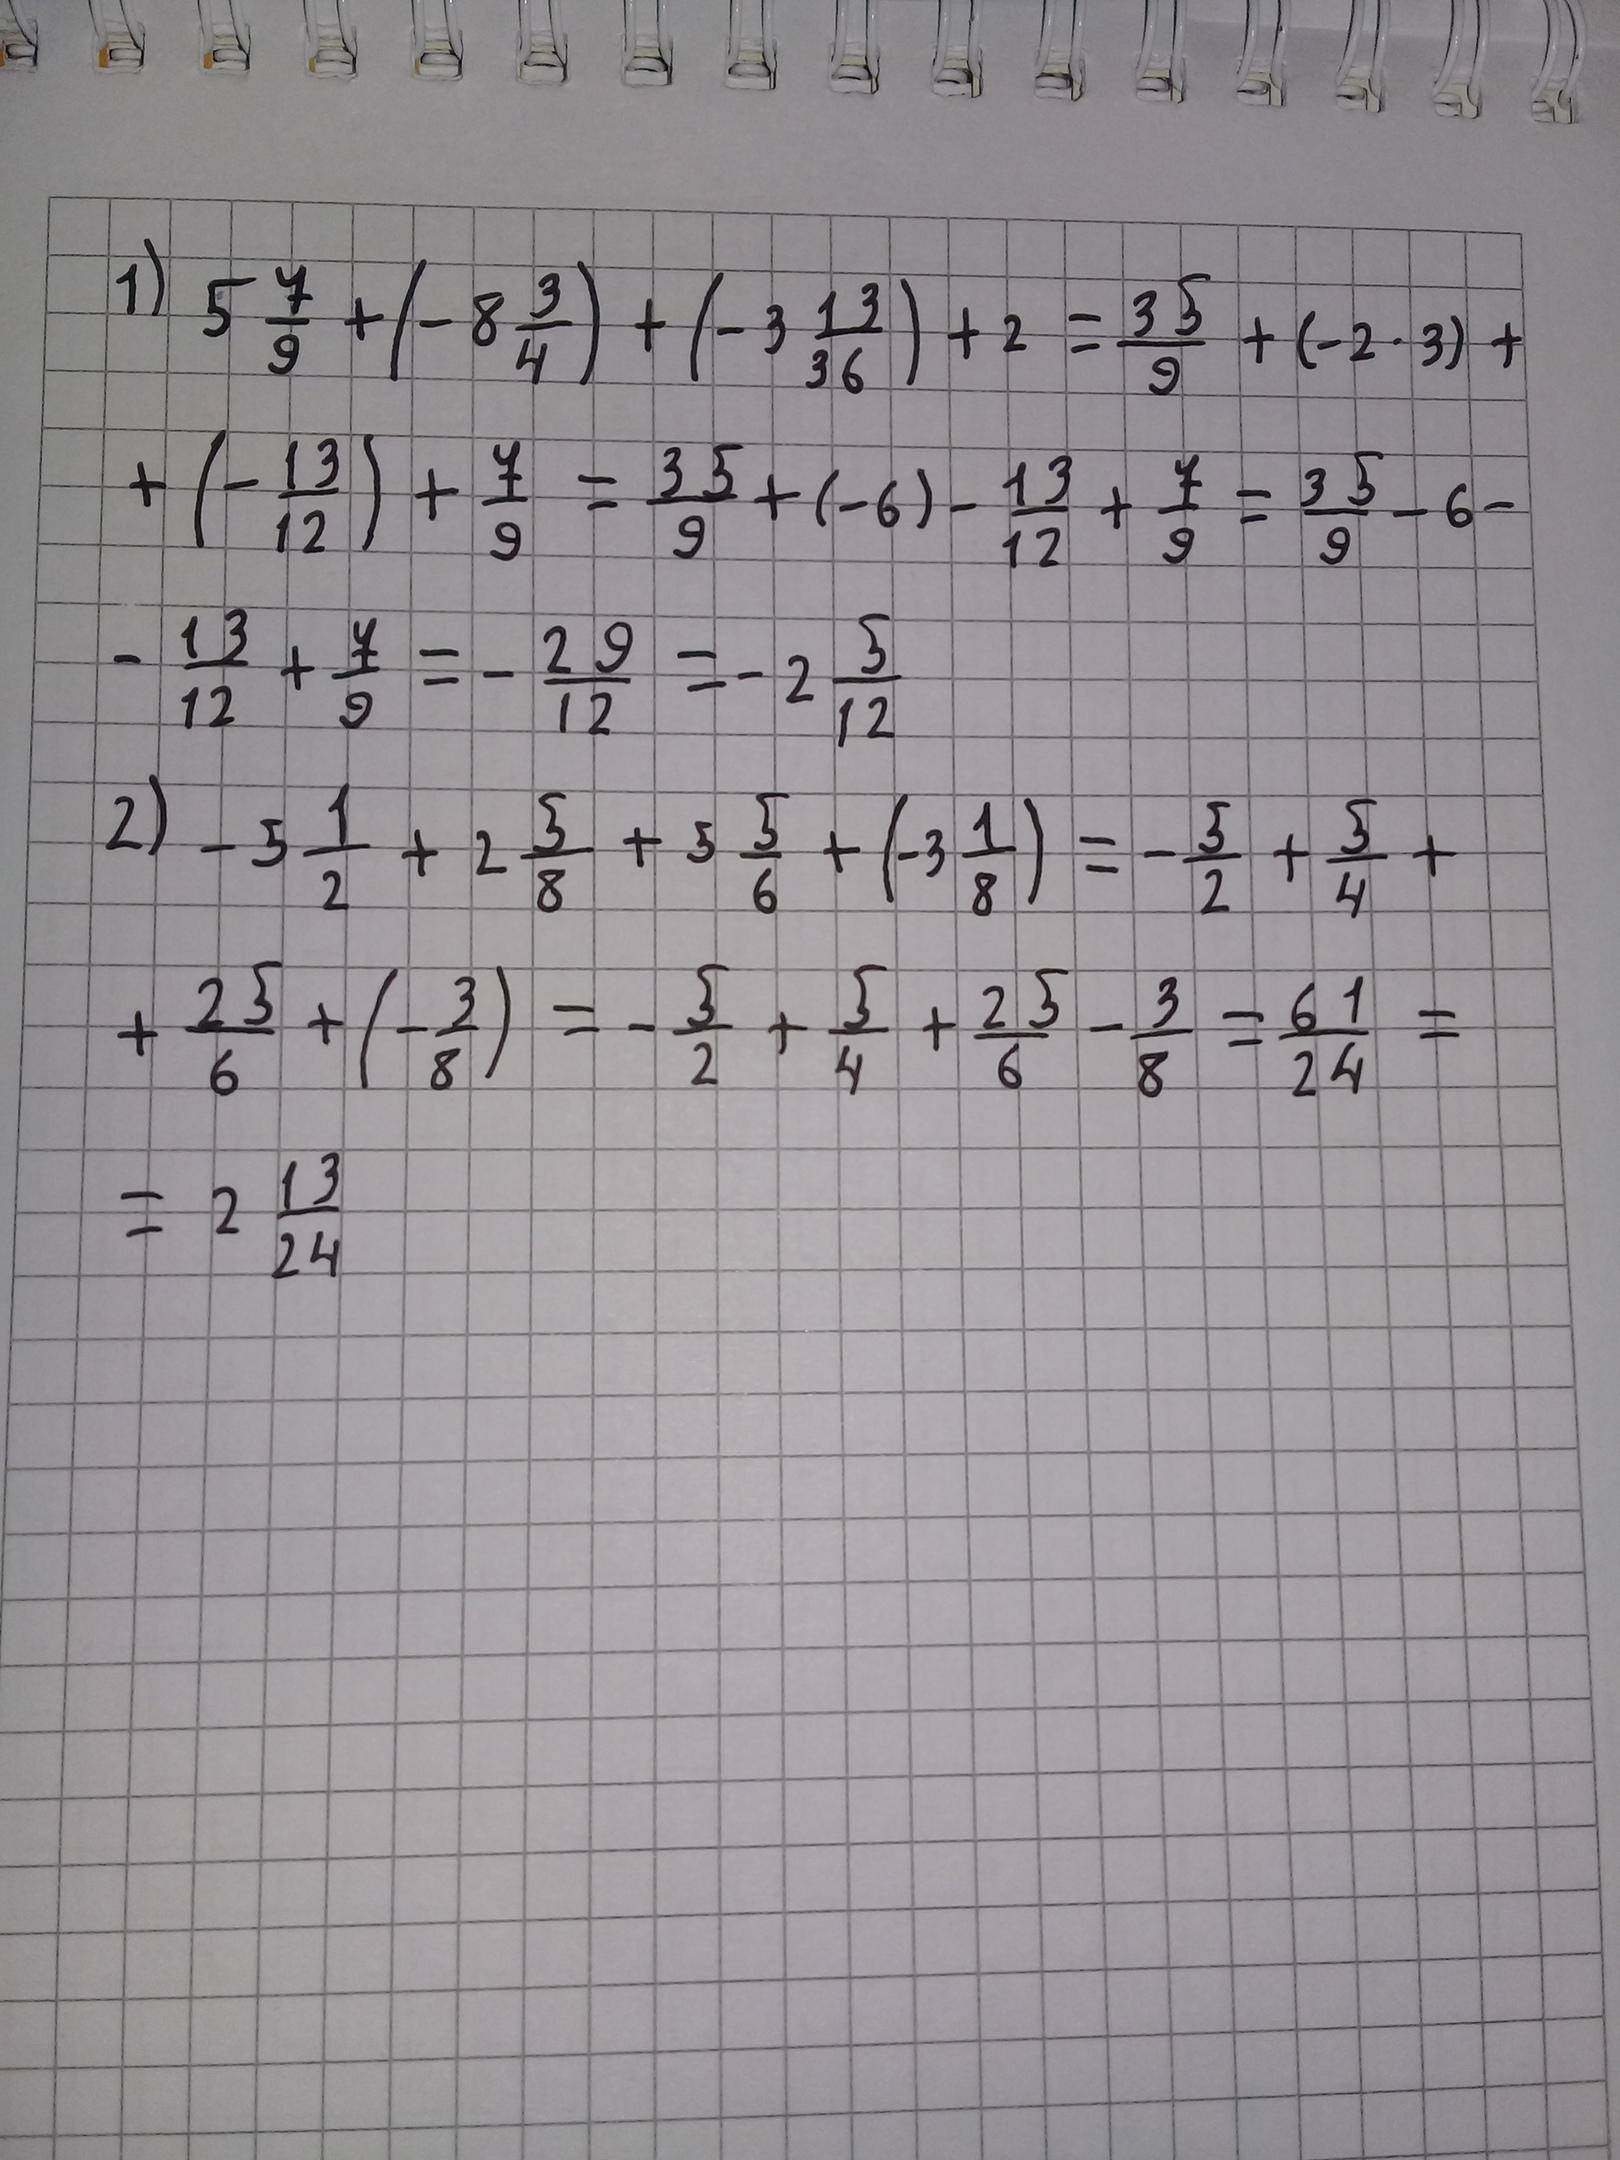 1) 5 7/9 + (- 8 3/4) + (- 3 13/36) + 2 = 35/9 + (-2 · 3) +
+ (- 13/12) + 7/9 = 35/9 + (-6) - 13/12 + 7/9 = 35/9 - 6 -
- 13/12 + 7/9 = - 29/12 = - 2 5/12
2) - 5 1/2 + 2 5/8 + 5 5/6 + (-3 1/8) = - 5/2 + 5/4 +
+ 25/6 + (- 3/8) = - 5/2 + 5/4 + 25/6 - 3/8 = 61/24 =
= 2 13/24